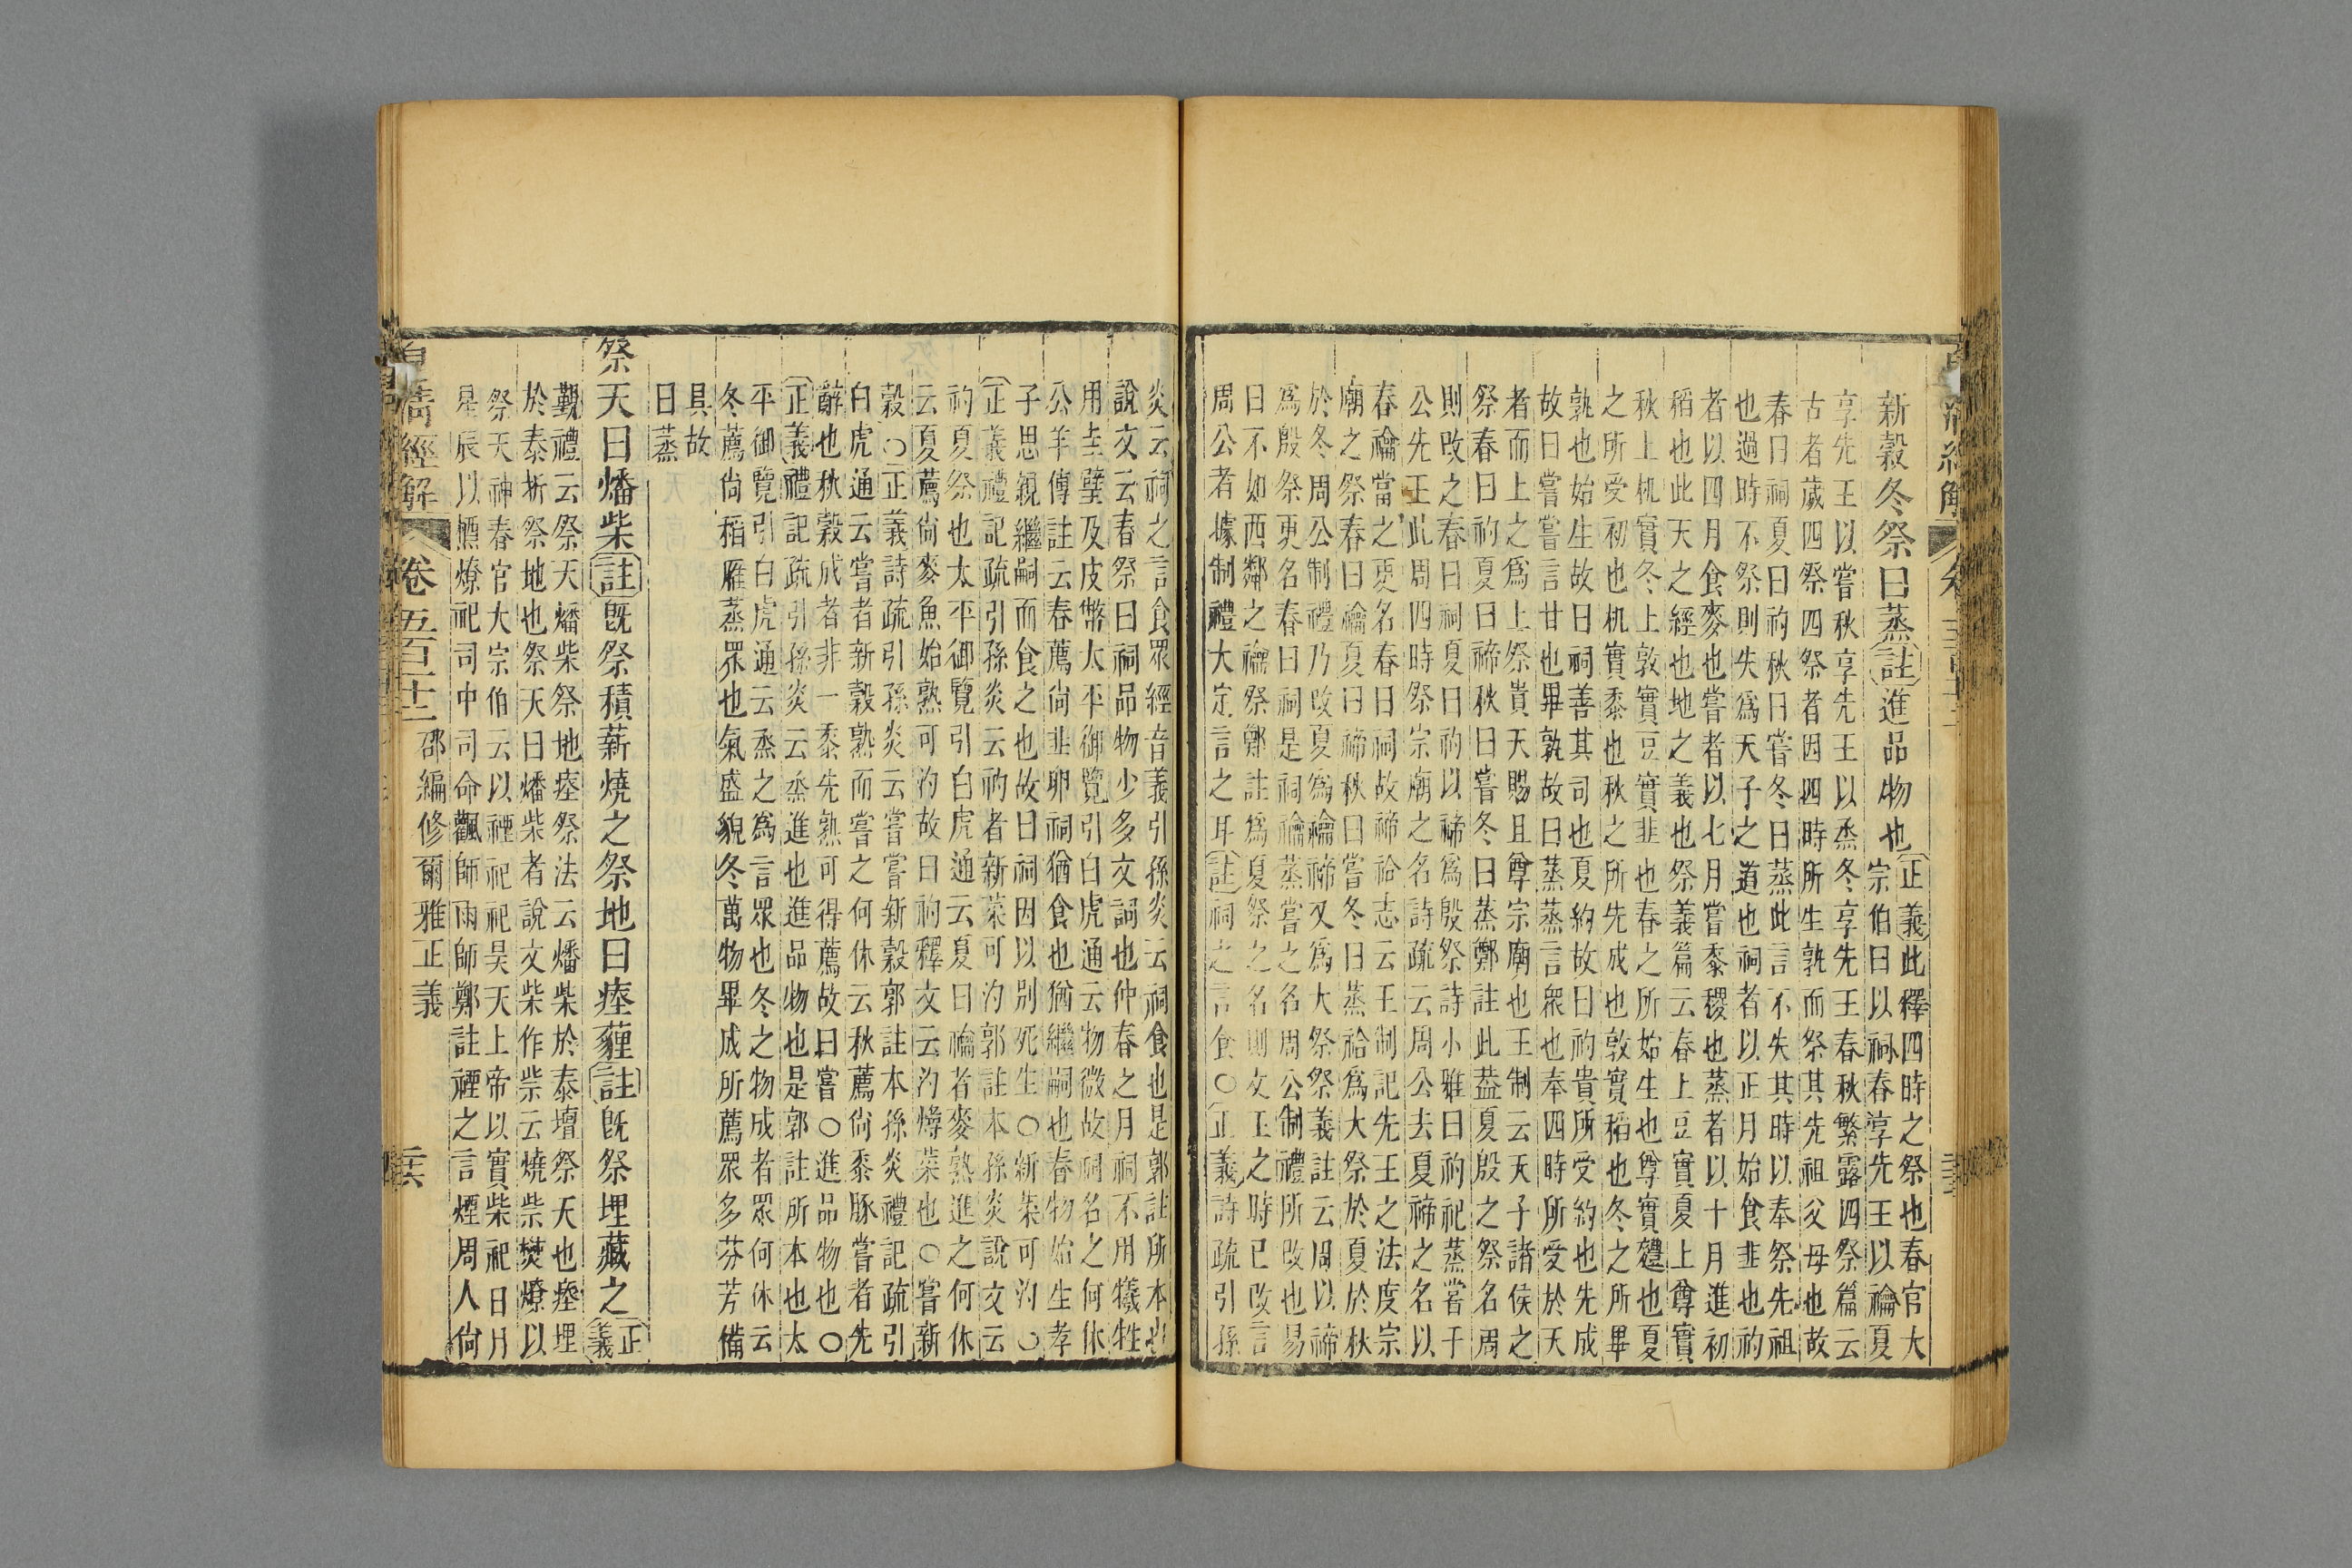 新穀冬祭曰蒸註進品物也正義此釋四時之祭也春官大
宗伯曰以祠春享先王以禴夏
享先王以嘗秋享先王以烝冬享先王春秋繁露四祭篇云
古者歲四祭四祭者因四時所生孰而祭其先祖父母也故
春曰祠夏曰礿秋曰嘗冬曰蒸此言不失其時以奉祭先祖
也過時不祭則失爲天子之道也祠者以正月始食韭也礿
者以四月食麥也嘗者以七月嘗黍稷也蒸者以十月進初
稻也此天之經也地之義也祭義篇云春上豆實夏上尊實
秋上机實冬上敦實豆實韭也春之所始生也尊實也夏
之所受初也机實黍也秋之所先成也敦實稻也冬之所畢
孰也始生故曰祠善其司也夏約故曰礿貴所受約也先成
故曰嘗嘗言甘也畢孰故曰蒸蒸言衆也奉四時所受於天
者而上之爲上祭貴天賜且尊宗廟也王制云天子諸侯之
祭春曰礿夏曰禘秋曰嘗冬曰蒸鄭註此葢夏殷之祭名周
則改之春曰祠夏曰礿以禘爲殷祭詩小雅曰礿祀蒸嘗于
公先王此周四時祭宗廟之名詩疏云周公去夏禘之名以
春禴當之更名春曰祠故禘祫志云王制記先王之法度宗
廟之祭春曰禴夏曰禘秋曰嘗冬曰蒸祫爲大祭於夏於秋
於冬周公制禮乃改夏爲禴禘又爲大祭祭義註云周以禘
爲殷祭更名春曰祠是祠禴蒸嘗之名周公制禮所改也易
曰不如西鄰之禴祭鄭註爲夏祭之名則文王之時已改言
周公者據制禮大定言之耳註祠之言食○正義詩疏引孫
炎云祠之言食眾經音義引孫炎云祠食也是郭註所本也
說文云春祭曰祠品物少多文詞也仲春之月祠不用犧牲
用圭璧及皮幣太平御覽引白虎通云物微故祠名之何休
公羊傳註云春薦尚韭卵祠猶食也猶繼嗣也春物始生孝
子思親繼嗣而食之也故曰祠因以別死生○新菜可汋○
正義禮記疏引孫炎云礿者新菜可汋郭註本孫炎說文云
礿夏祭也太平御覽引白虎通云夏曰禴者麥熟進之何休
云夏薦尚麥魚始熟可汋故曰礿釋文云汋爚菜也○嘗新
穀○正義詩疏引孫炎云嘗嘗新穀郭註本孫炎禮記疏引
白虎通云嘗者新穀熟而嘗之何休云秋薦尚黍豚嘗者先
辭也秋穀成者非一黍先熟可得薦故曰嘗○進品物也○
正義禮記疏引孫炎云烝進也進品物也是郭註所本也太
平御覽引白虎通云烝之爲言眾也冬之物成者眾何休云
冬薦尚稻雁蒸眾也氣盛貌冬萬物畢成所薦眾多芬芳備
具故
曰蒸
祭天曰燔柴註既祭積薪燒之祭地曰瘞薶註旣祭埋藏之正
義
覲禮云祭天燔柴祭地瘞祭法云燔柴於泰壇祭天也瘞埋
於泰折祭地也祭天曰燔柴者說文柴作祡云燒祡燓燎以
祭天神春官大宗伯云以禋祀祀昊天上帝以實柴祀日月
星辰以槱燎祀司中司命飌師雨師鄭註禋之言煙周人尚
皇清經解 卷五百十二 邵編修爾雅正義